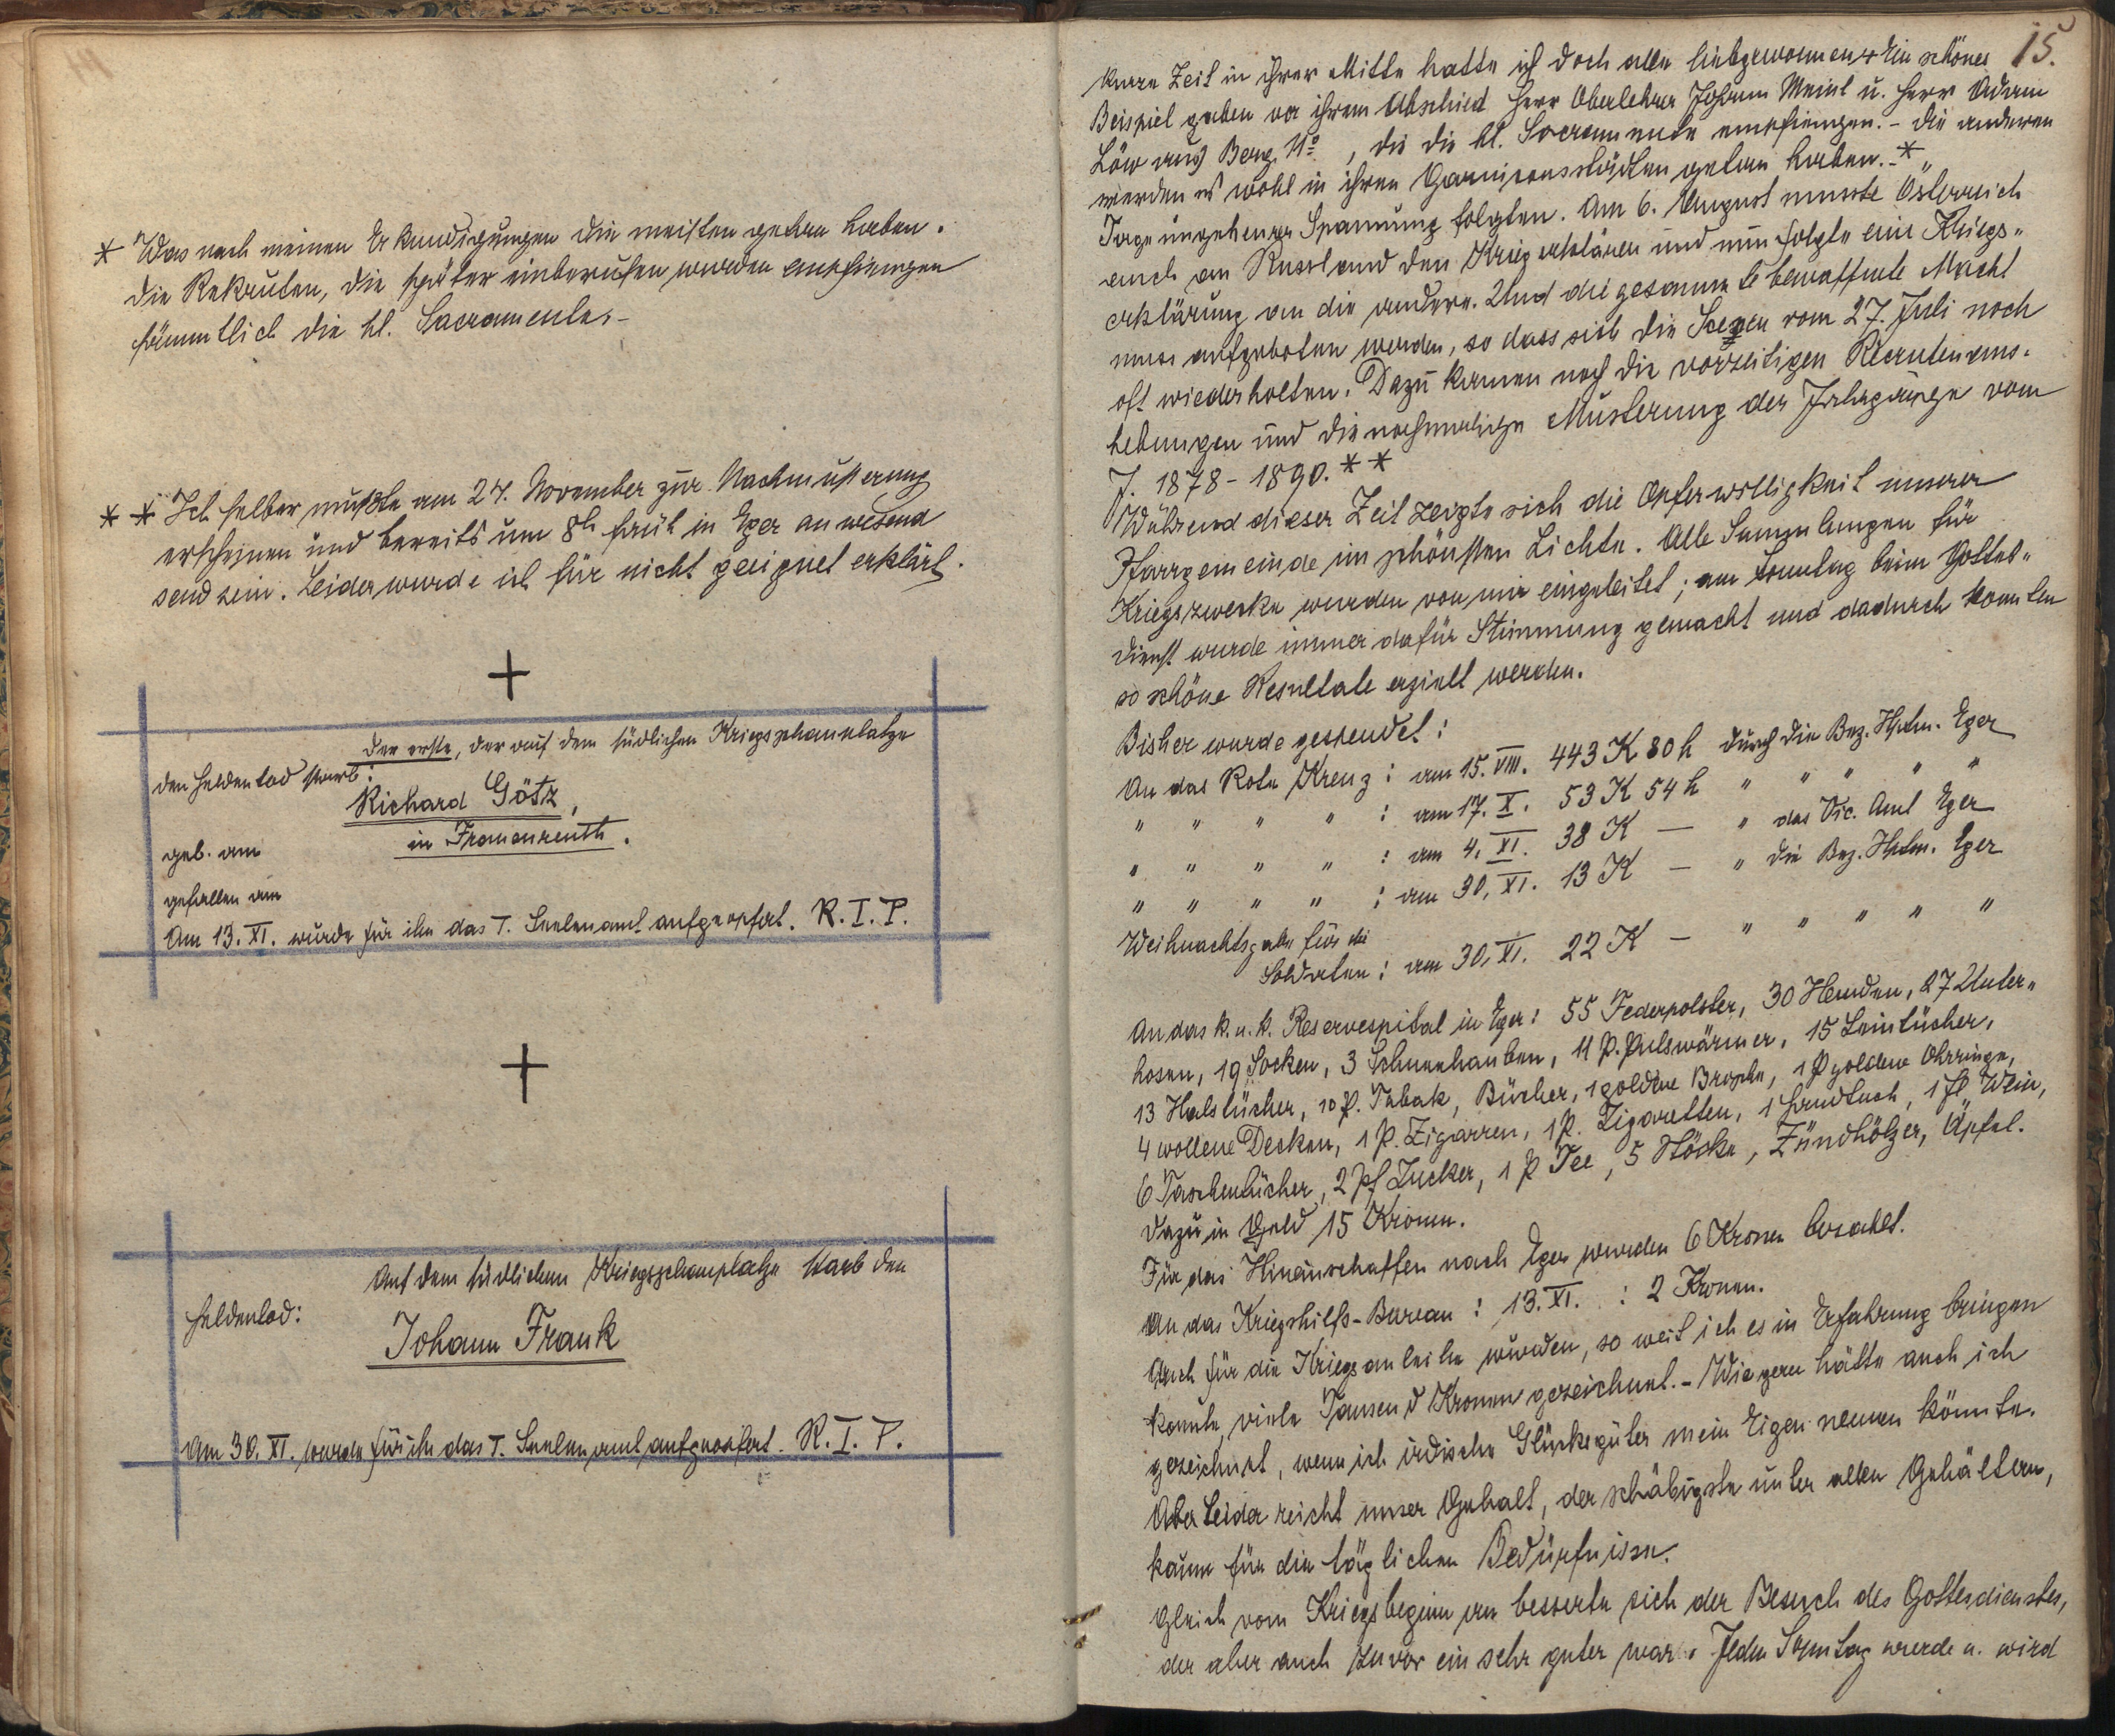 * Was nach meinen Erkundigungen die meisten getan haben.
die Rekruten, die später einberufen wurden empfiengen
sämmtlich die hl. Sacramente. –
* * Ich selber mußte am 27. November zur Nachmusterung
erscheinen und bereits um 8h früh in Eger anwesend
send sein. Leider wurde ich für nicht geeignet erklärt.
+
der erste, der auf dem südlichen Kriegsschauplatze
den Heldentod starb:
Richard Götz,
in Frauenreuth.
geb. am
gefallen am
Am 13. XI. wurde für ihn das T. Seelenamt aufgeopfert. R. I. P.
+
Auf dem südlichen Kriegsschauplatze starb den
Heldentod:
Johann Frank
Am 30. XI. wurde für ihn das T. Seelenamt aufgeopfert. R. I. P.
15.
kurze Zeit in ihrer Mitte hatte ich doch alle liebgewonnen + Ein schönes
Beispiel gaben vor ihrem Abschied Herr Oberlehrer Johann Meinl u. Herr Adam
Löw aus Berg No , die die hl. Sacramente empfiengen. – die anderen
werden es wohl in ihren Garnisonsstädten getan haben. – *
Tage ungeheurer Spannung folgten. Am 6. August musste Österreich
auch an Russland den Krieg erklären und nun folgte eine Kriegs„
erklärung an die andere. Und die gesammte bewaffnete Macht
muss aufgeboten werden, so dass sich die Scenen vom 27. Juli noch
oft wiederholten. Dazu kamen noch die vorzeitigen Recrutenaus„
hebungen und die nochmalige Musterung der Jahrgänge vom
J. 1878 – 1890. * *
Während dieser Zeit zeigte sich die Opferwilligkeit unserer
Pfarrgemeinde im schönsten Lichte. Alle Sammlungen für
Kriegszwecke wurden von mir eingeleitet; am Sonntag beim Gottes„
dienst wurde immer dafür Stimmung gemacht und dadurch konnten
so schöne Resultate erzielt werden.
Bisher wurde gespendet:
An das Rote Kreuz: am 15. VIII. 443 K 80 h durch die Bez. Hptm. Eger
" " " " : am 17. X. 53 K 54 h " " " " "
" " " " : am 4. XI. 38 K — " das Vic. Amt Eger
" " " " : am 30. XI. 13 K — " die Bez. Hptm. Eger
Weihnachtsgabe für die
Soldaten: am 30. XI. 22 K — " " " " "
An das k. u. k. Reservespital in Eger: 55 Federpolster, 30 Hemden, 27 Unter„
hosen, 19 Socken, 3 Schneehauben, 11 P. Pulswärmer, 15 Leintücher,
13 Halstücher, 10 P. Tabak, Bücher, 1 goldene Brosche, 1 P goldene Ohrringe,
4 wollene Decken, 1 P. Zigarren, 1 P. Zigaretten, 1 Handtuch, 1 Fl Wein,
6 Taschentücher, 2 Pf Zucker, 1 P Tee, 5 Stöcke, Zündhölzer, Äpfel.
dazu in Geld 15 Kronen.
Für das Hineinschaffen nach Eger wurden 6 Kronen bezahlt.
An das Kriegshilfs-Bureau: 13. XI. : 2 Kronen.
Auch für die Kriegsanleihe wurden, so weit ich es in Erfahrung bringen
konnte, viele Tausend Kronen gezeichnet. – Wie gern hätte auch ich
gezeichnet, wenn ich irdische Glücksgüter mein Eigen nennen könnte.
Aber leider reicht unser Gehalt, der schäbigste unter allen Gehältern,
kaum für die täglichen Bedürfnisse.
Gleich vom Kriegsbeginn an besserte sich der Besuch des Gottesdienstes,
der aber auch zuvor ein sehr guter war. Jeden Sonntag wurde u. wird